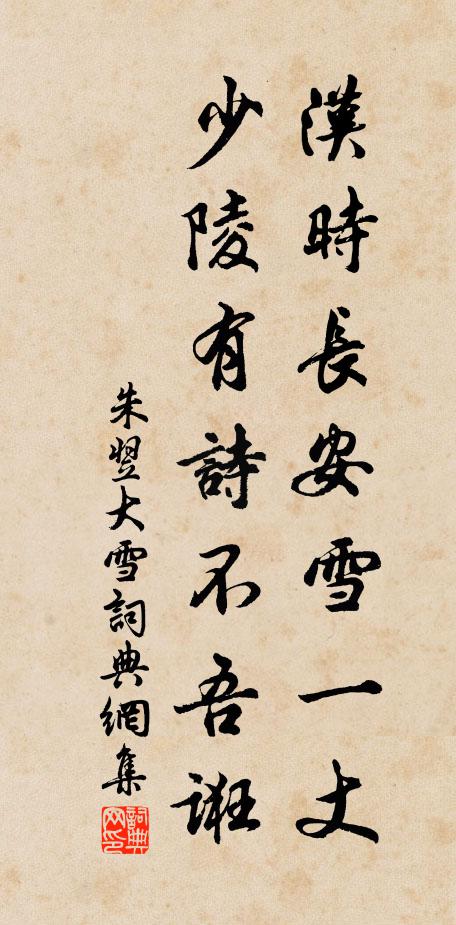 漢時長安雪一丈
少陵有詩不吾誑
朱翌大雪詞典網集
詞典网印